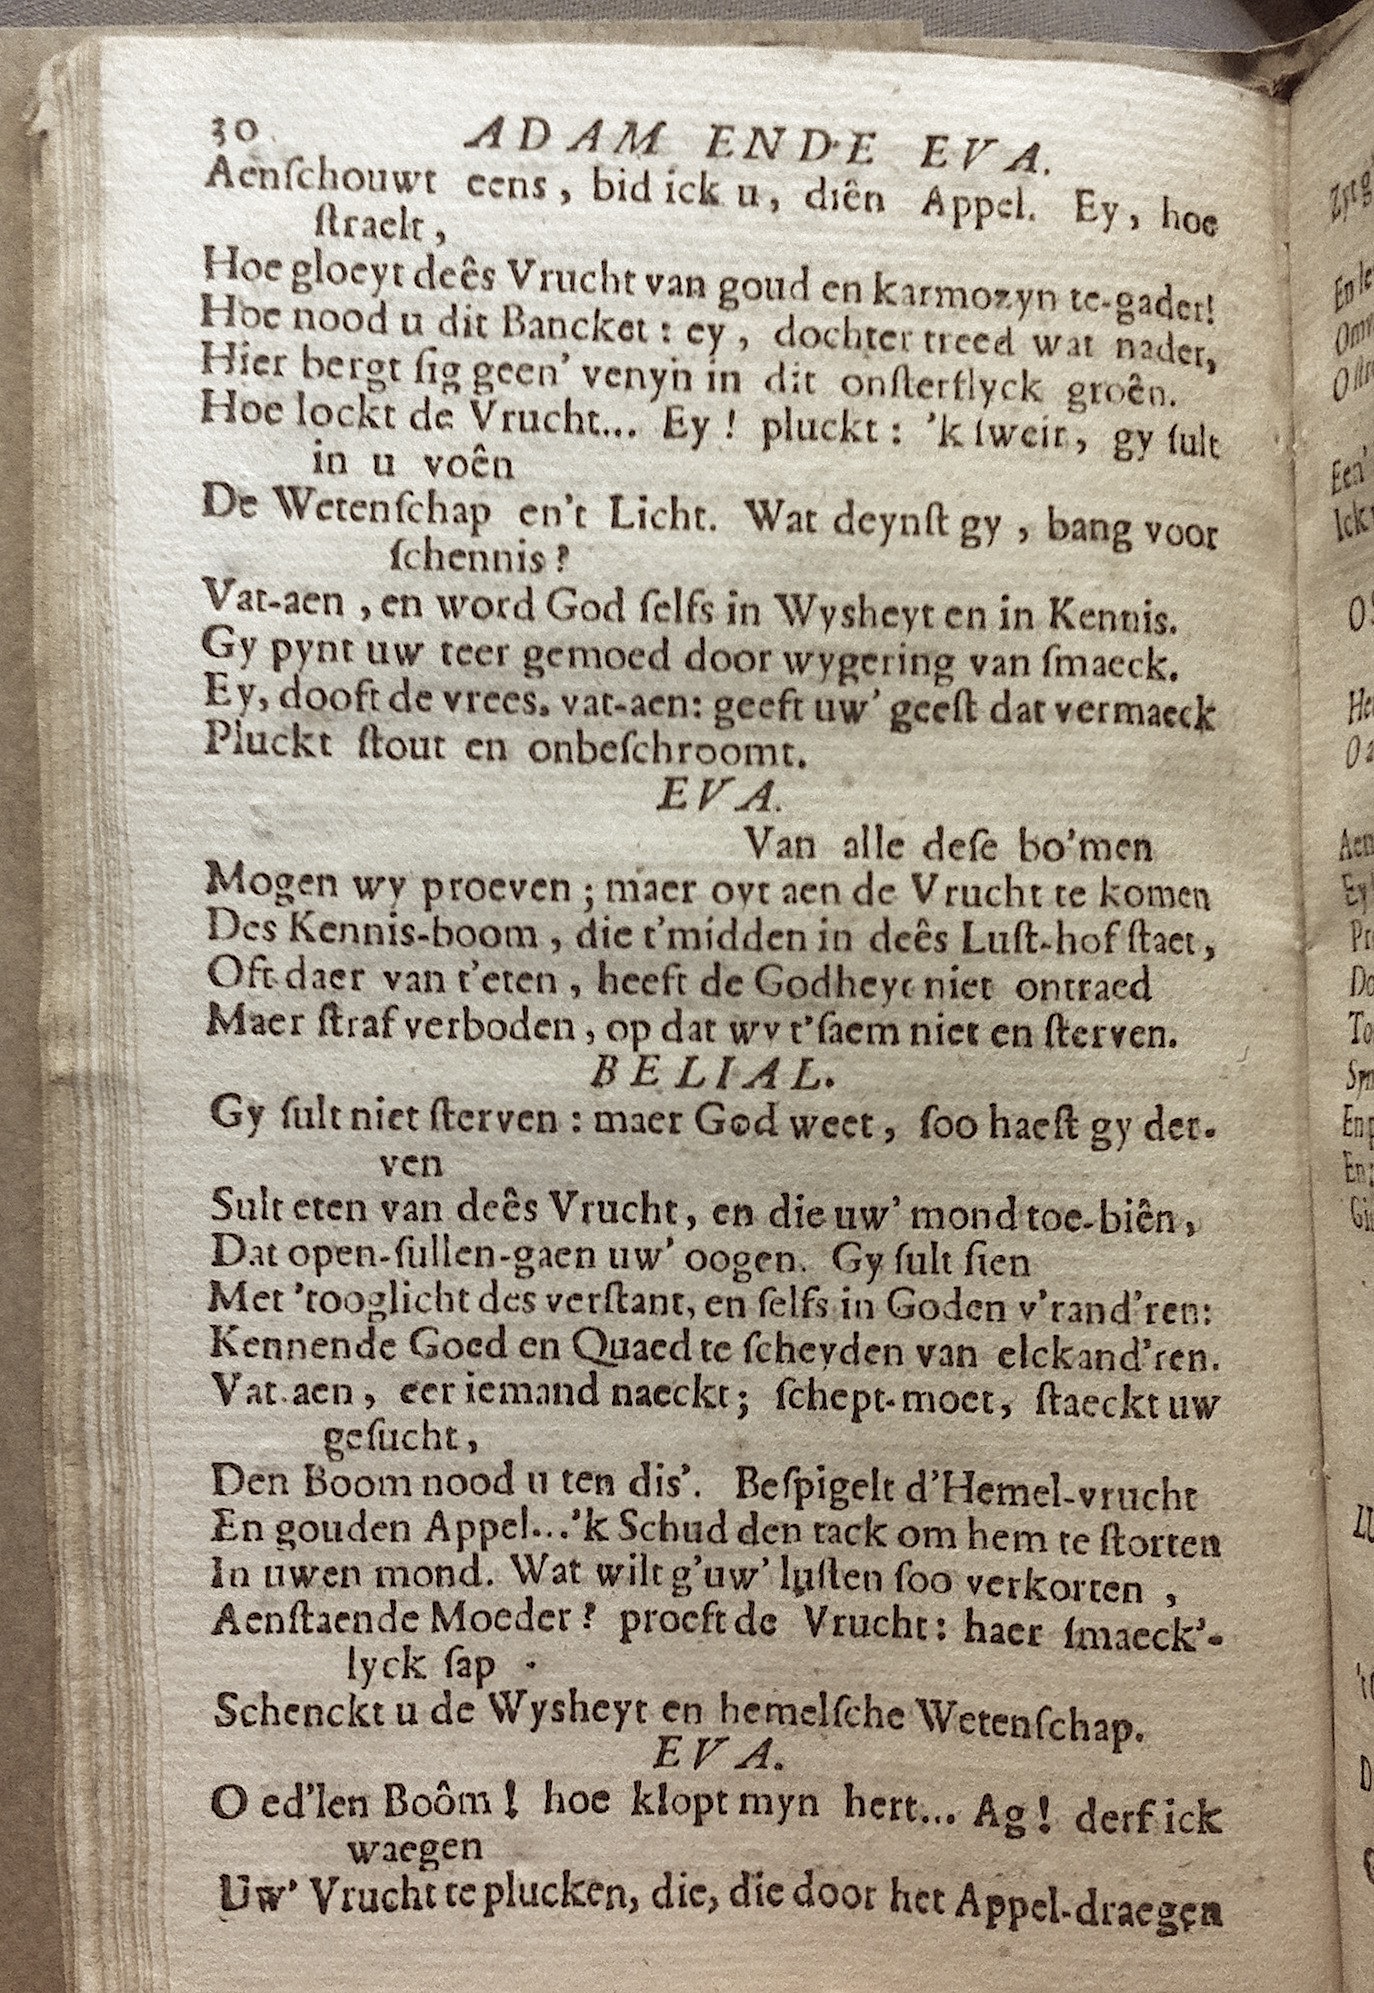 30 ADAM ENDE EVA.
Aenſchouwt eens, bid ick u, diên Appel. Ey, hoe
ſtraelt,
Hoe gloeyt deês Vrucht van goud en karmozyn te-gader!
Hoe nood u dit Bancket: ey, dochter treed wat nader,
Hier bergt ſig geen' venyn in dit onſterflyck groên.
Hoe lockt de Vrucht... Ey! pluckt: 'k ſweir, gy ſult
in u voên
De Wetenſchap en't Licht. Wat deynſt gy, bang voor
ſchennis?
Vat-aen, en word God ſelfs in Wysheyt en in Kennis.
Gy pynt uw teer gemoed door wygering van ſmaeck.
Ey, dooft de vrees. vat-aen: geeft uw' geeſt dat vermaeck
Pluckt ſtout en onbeſchroomt.
EVA.
Van alle deſe bo'men
Mogen wy proeven; maer oyt aen de Vrucht te komen
Des Kennis-boom, die t'midden in deês Luſt-hof ſtaet,
Oft daer van t'eten, heeft de Godheyt niet ontraed
Maer ſtraf verboden, op dat wy t'ſaem niet en ſterven.
BELIAL.
Gy ſult niet ſterven: maer God weet, ſoo haeſt gy der-
ven
Sult eten van deês Vrucht, en die uw' mond toe-biên,
Dat open-ſullen-gaen uw' oogen. Gy ſult ſien
Met 'tooglicht des verſtant, en ſelfs in Goden v'rand'ren:
Kennende Goed en Quaed te ſcheyden van elckand'ren.
Vat-aen, eer iemand naeckt; ſchept-moet, ſtaeckt uw
geſucht,
Den Boom nood u ten dis'. Beſpigelt d'Hemel-vrucht
En gouden Appel...'k Schud den tack om hem te ſtorten
In uwen mond. Wat wilt g'uw' luſten ſoo verkorten,
Aenſtaende Moeder? proeft de Vrucht: haer ſmaeck'-
lyck ſap
Schenckt u de Wysheyt en hemelſche Wetenſchap.
EVA.
O ed'len Boôm! hoe klopt myn hert... Ag! derf ick
waegen
Uw' Vrucht te plucken, die, die door het Appel-draegen